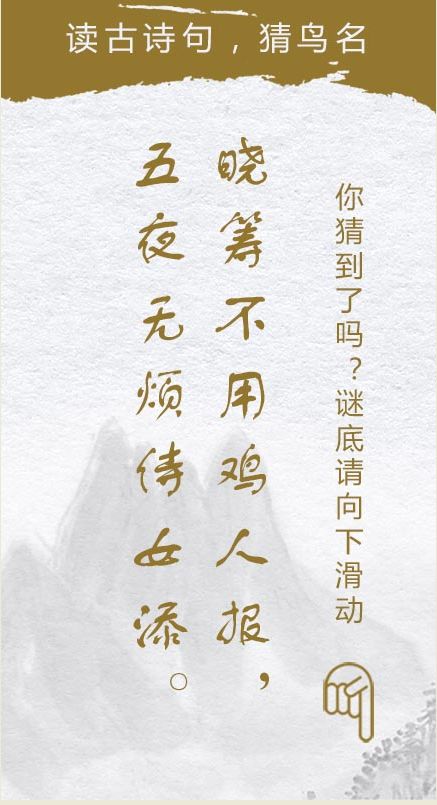 读古诗句，猜鸟名
你猜到了吗？谜底请向下滑动
晓筹不用鸡人报，
五夜无烦侍女添。